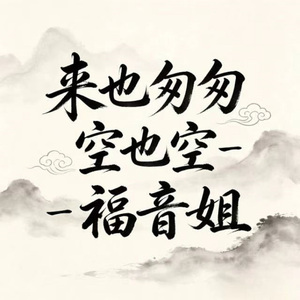 来也匆匆
空也空-
-福音姐